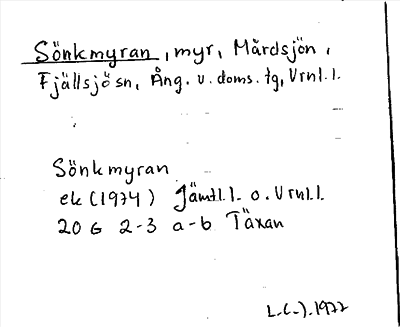 Sönkmyran, myr, Mårdsjön,
Fjällsjö sn, Ång. v. doms. tg, Vrnl. l.
Sönkmyran
ek (1974) Jämtl. l. o. Vrnl. l.
20 G 2-3 a-b Täxan
L-(-). 1977